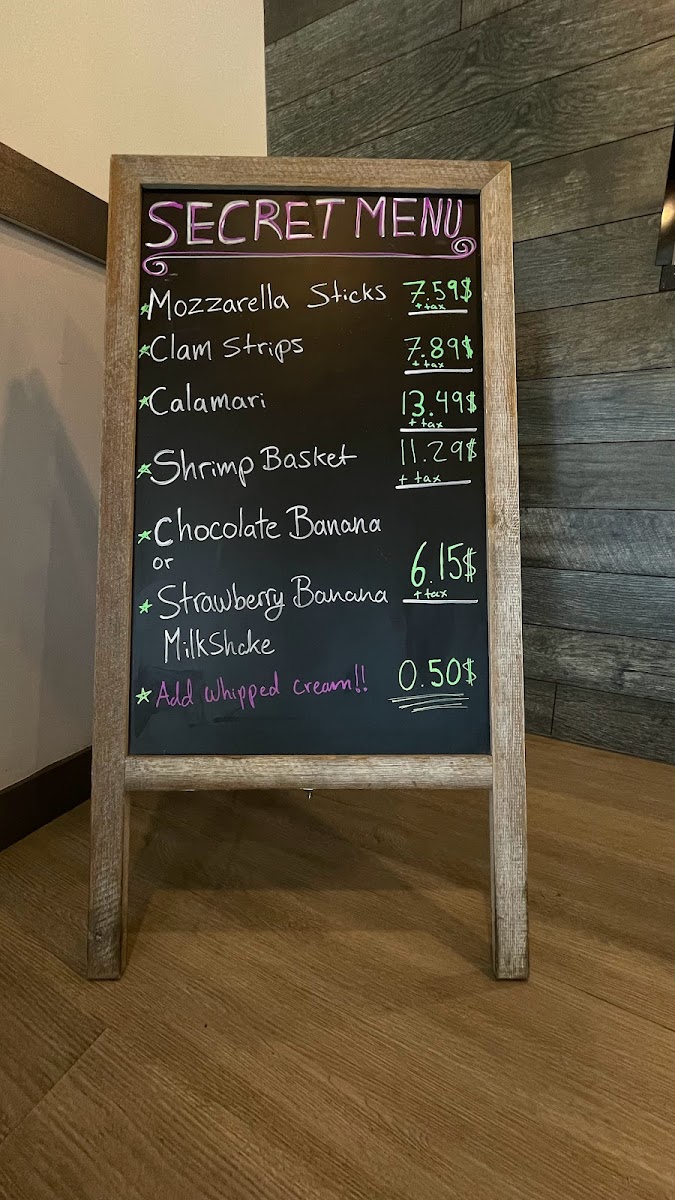 SECRET MENU
Mozzarella Sticks 7.59$
+ tax
Clam Strips 7.89$
+ tax
Calamari 13.49$
+ tax
Shrimp Basket 11.29$
+ tax
Chocolate Banana
or
Strawberry Banana 6.15$
+ tax
MilkShake
Add whipped cream!! 0.50$